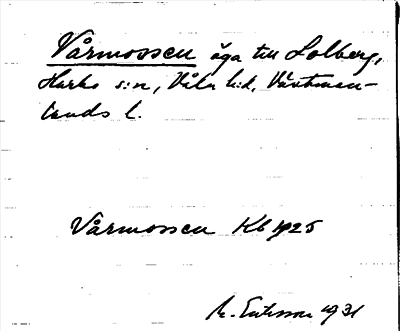 Vårmossen äga till Solberg,
Harbo s:n, Våla h:d, Västman-
lands l.
Vårmossen Kb 1925
M. Eriksson 1931